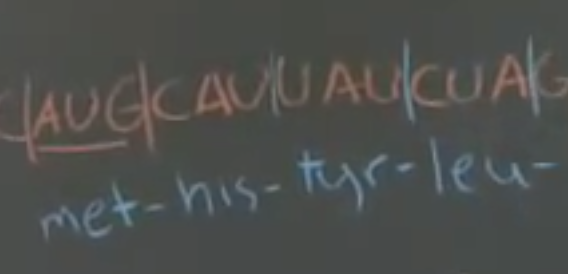 C|AUG|CAU|UAU|CUA|G
met-his-tyr-leu-